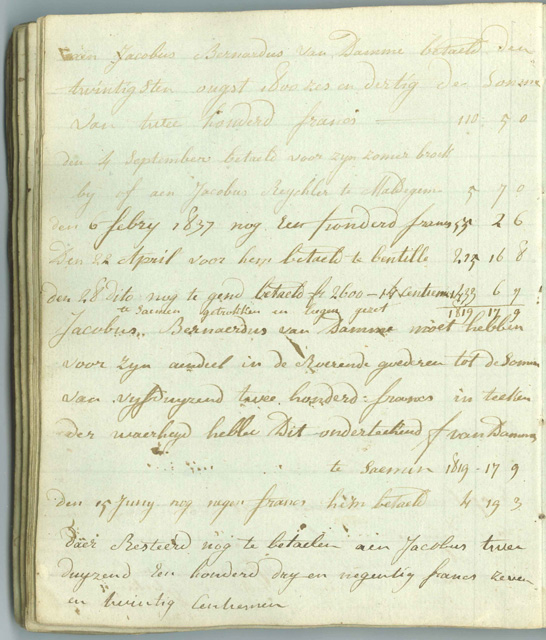 aen Jacobus Bernardus van Damme betaeld den
twintigsten ougst 1800 zes en dertig de Somme
van twee honderd francs 110 5 0
den 4 September betaeld voor zyn zomer broek
by of aen Jacobus Reychler te Maldegem 5 7 0
den 6 febry 1837 nog Een honderd francs 55 2 6
Den 22 April voor hem betaeld te bentille 215 16 8
den 28 dito nog te gend betaeld fr 2600 - 14 Centimen 1433 6 7
te Saemen getrokken en Eigen gezet 1819 17 9
Jacobus Bernaerdus van Damme moet hebben
voor zyn aendeel in de Roerende goederen tot de Somm
van vyfduyzend twee honderd francs in teeken
der waerheyd hebbe Dit onderteekend J van Damme
te Saemen 1819 - 17 9
den 15 Juny nog negen francs hem betaeld 4 19 3
Daer Resteerd nog te betaelen aen Jacobus twee
duyzend Een honderd dry en negentig francs zeven
en twintig Centiemen